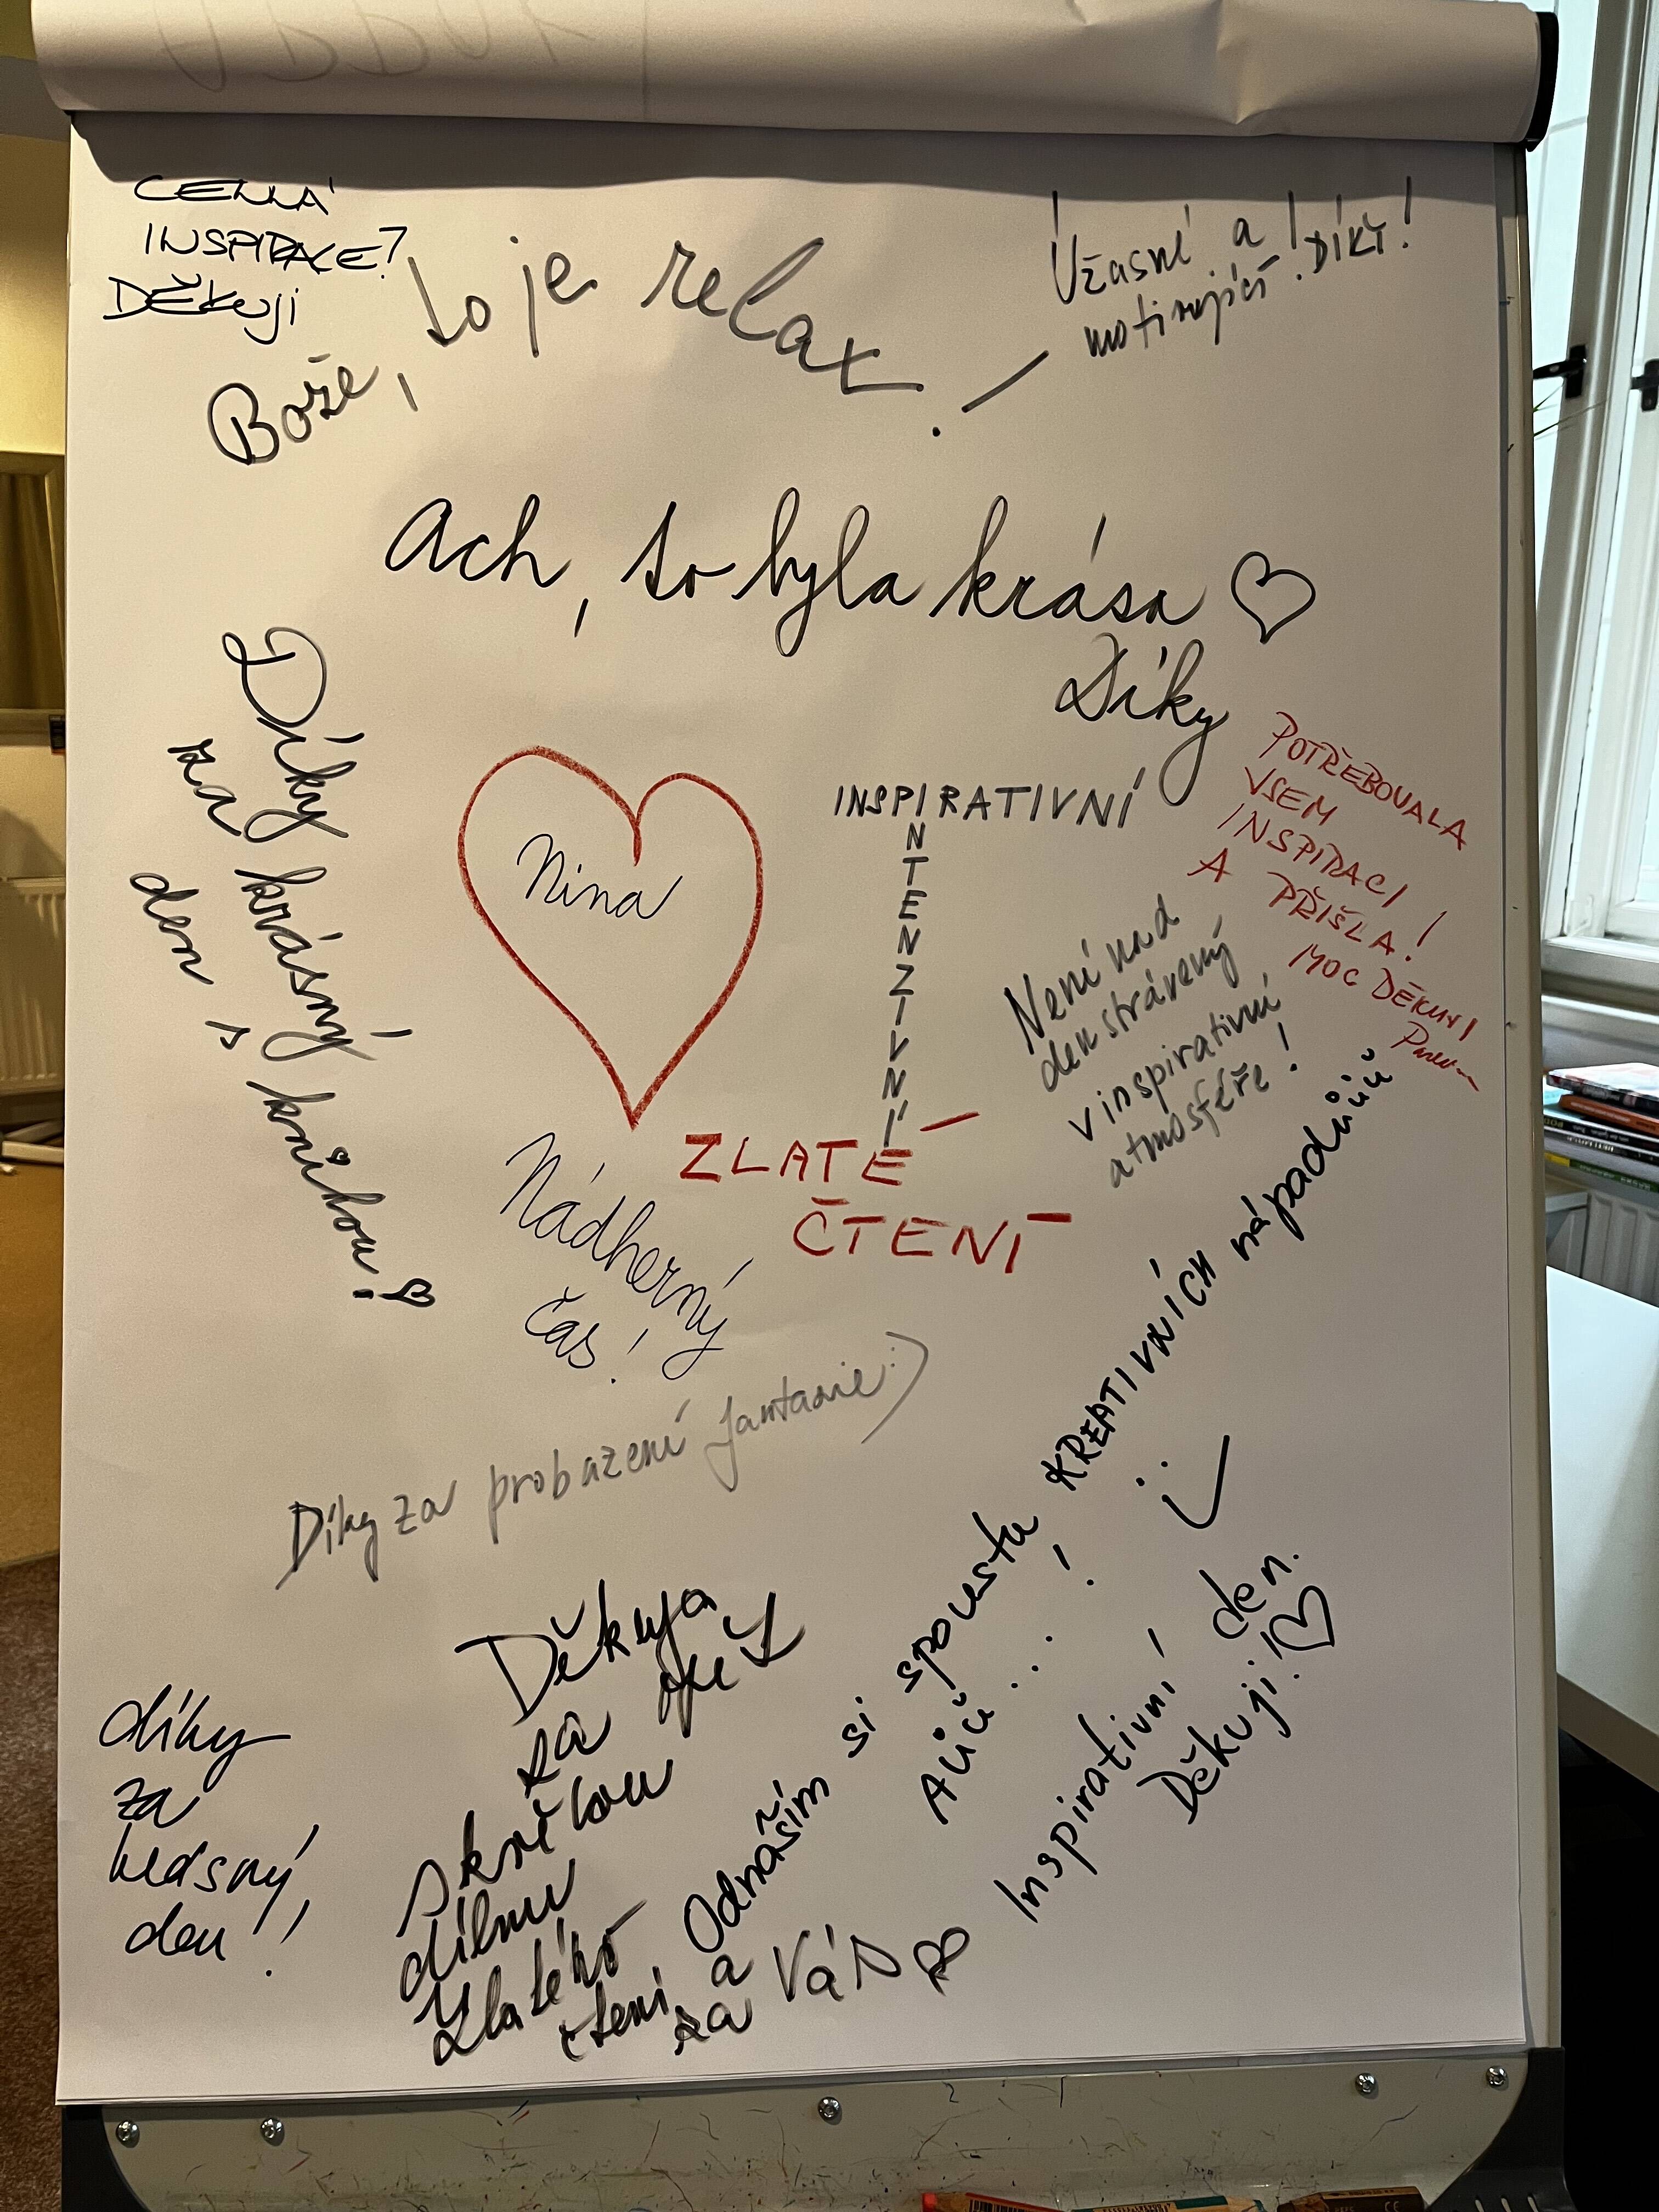 CENNÁ
INSPIRACE!
DĚKUJI
Bože, to je relax!
Úžasné a
motivující! DÍKY!
Ach, to byla krása ♡
Díky
Díky krásný
za
den s knihou!
Nina
INSPIRATIVNÍ
INTENZIVNÍ
ZLATÉ
ČTENÍ
POTŘEBOVALA
JSEM
INSPIRACI
A PŘIŠLA!
MOC DĚKUJI
Není nad
den strávený
v inspirativní
atmosféře!
Nádherný
čas!
Díky za probuzení fantazie :)
Odnáším si spoustu KREATIVNÍCH nápadůůů
Aůů...!
Inspirativní den.
Děkuji! ♡
Děkuja
za
dílnu
zlatého
čtení a
za Vás ♡
díky
za
krásný
den!